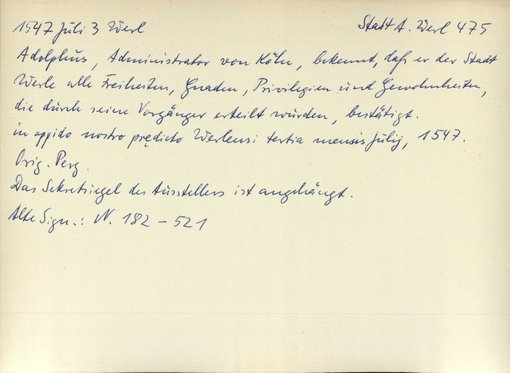 1547 Juli 3 Werl Stadt A. Werl 475
Adolphus, Administrator von Köln, bekennt, daß er der Stadt
Werle alle Freiheiten, Gnaden, Privilegien und Gewohnheiten,
die durch seine Vorgänger erteilt wurden, bestätigt.
in oppido nostro predicto Werlensi tertia mensis Julij, 1547.
Orig. Perg.
Das Sekretsiegel des Ausstellers ist angehängt.
Alte Sign.: N. 182 - 521